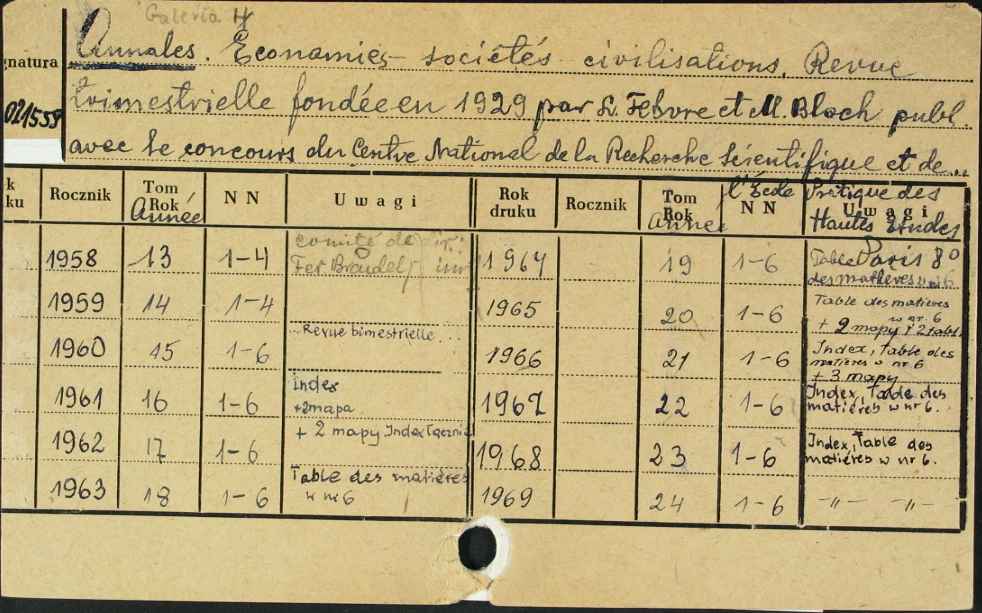 Galeria H
Annales. Economies – sociétés civilisations. Revue
gnatura
trimestrielle fondée en 1929 par L. Febvre et M. Bloch publ.
021558
avec le concours du Centre National de la Recherche Scientifique et de
l'École Pratique des
Hautes Etudes
Paris 8°
k ku Rocznik Tom Rok Année NN Uwagi Rok druku Rocznik Tom Rok Année NN Uwagi
1958 13 1-4 comité de dir.: Fer Braudel 1964 19 1-6 Table des matières w nr 6
1959 14 1-4 1965 20 1-6 Table des matières w nr. 6 + 2 mapy i 2 tabl.
1960 15 1-6 Revue bimestrielle 1966 21 1-6 Index, Table des matières w nr 6 + 3 mapy
1961 16 1-6 index +2mapa 1967 22 1-6 Index, Table des matières w nr 6.
1962 17 1-6 + 2 mapy Index łącznie 1968 23 1-6 Index, Table des matières w nr 6.
1963 18 1-6 Table des matières w nr 6 1969 24 1-6 -"- -"-